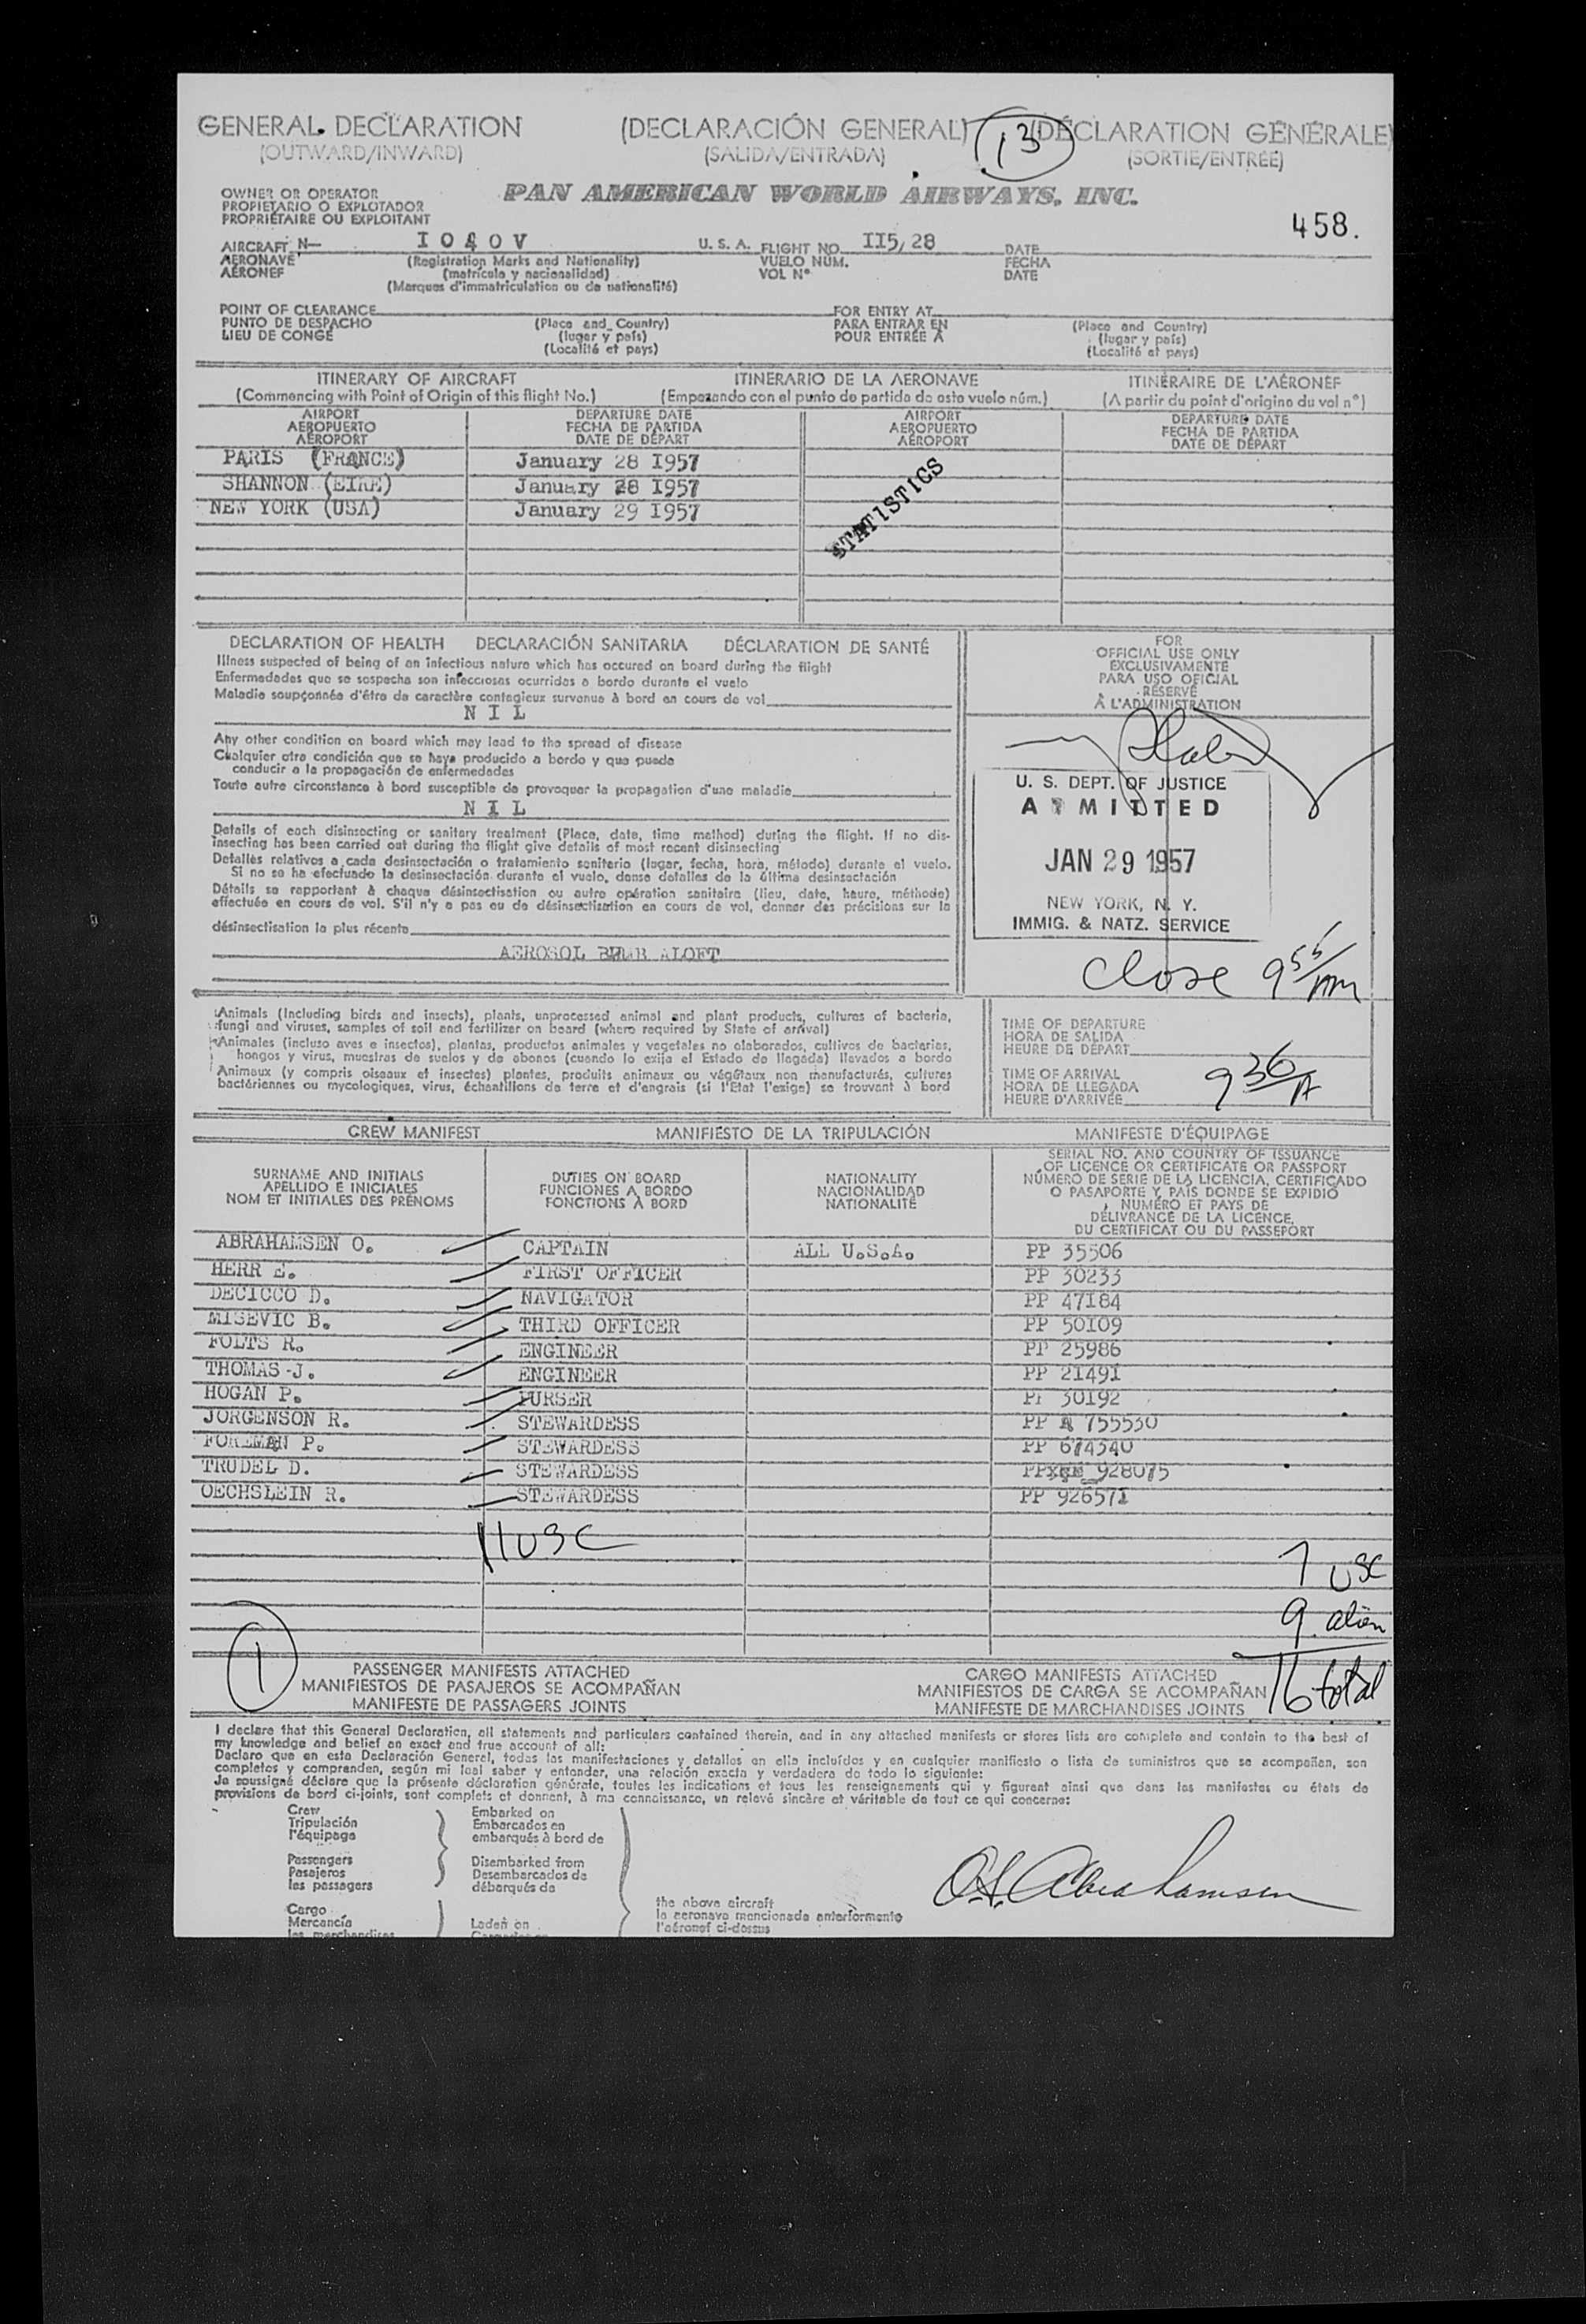 GENERAL DECLARATION (DECLARACIÓN GENERAL) (DÉCLARATION GÉNÉRALE)
13
(OUTWARD/INWARD) (SALIDA/ENTRADA) (SORTIE/ENTRÉE)
OWNER OR OPERATOR
PROPIETARIO O EXPLOTADOR
PROPRIÉTAIRE OU EXPLOITANT
PAN AMERICAN WORLD AIRWAYS, INC.
458.
AIRCRAFT N— I040V U. S. A. FLIGHT NO. II5/28 DATE
AERONAVE (Registration Marks and Nationality) VUELO NÚM. FECHA
AÉRONEF (matrícula y nacionalidad) VOL Nº DATE
(Marques d'immatriculation ou de nationalité)
POINT OF CLEARANCE FOR ENTRY AT
PUNTO DE DESPACHO (Place and Country) PARA ENTRAR EN (Place and Country)
LIEU DE CONGÉ (lugar y país) POUR ENTRÉE À (lugar y país)
(Localité et pays) (Localité et pays)
ITINERARY OF AIRCRAFT ITINERARIO DE LA AERONAVE ITINÉRAIRE DE L'AÉRONEF
(Commencing with Point of Origin of this flight No.) (Empezando con el punto de partida de este vuelo núm.) (A partir du point d'origine du vol nº)
AIRPORT DEPARTURE DATE AIRPORT DEPARTURE DATE
AEROPUERTO FECHA DE PARTIDA AEROPUERTO FECHA DE PARTIDA
AÉROPORT DATE DE DÉPART AÉROPORT DATE DE DÉPART
PARIS (FRANCE) January 28 I957
SHANNON (EIRE) January 28 I957
NEW YORK (USA) January 29 I957
STATISTICS
DECLARATION OF HEALTH DECLARACIÓN SANITARIA DÉCLARATION DE SANTÉ
Illness suspected of being of an infectious nature which has occured on board during the flight
Enfermedades que se sospecha son infecciosas ocurridas a bordo durante el vuelo
Maladie soupçonnée d'être de caractère contagieux survenue à bord en cours de vol
N I L
Any other condition on board which may lead to the spread of disease
Cualquier otra condición que se haya producido a bordo y que pueda
conducir a la propagación de enfermedades
Toute autre circonstance à bord susceptible de provoquer la propagation d'une maladie
N I L
Details of each disinsecting or sanitary treatment (Place, date, time method) during the flight. If no dis-
insecting has been carried out during the flight give details of most recent disinsecting
Detalles relativos a cada desinsectación o tratamiento sanitario (lugar, fecha, hora, método) durante el vuelo.
Si no se ha efectuado la desinsectación durante el vuelo, dense detalles de la última desinsectación
Détails se rapportant à chaque désinsectisation ou autre opération sanitaire (lieu, date, heure, méthode)
effectuée en cours de vol. S'il n'y a pas eu de désinsectisation en cours de vol, donner des précisions sur la
désinsectisation la plus récente
AEROSOL ALOFT
FOR
OFFICIAL USE ONLY
EXCLUSIVAMENTE
PARA USO OFICIAL
RÉSERVÉ
À L'ADMINISTRATION
U. S. DEPT. OF JUSTICE
ADMITTED
JAN 29 1957
NEW YORK, N. Y.
IMMIG. & NATZ. SERVICE
Close 9 55/AM
Animals (Including birds and insects), plants, unprocessed animal and plant products, cultures of bacteria,
fungi and viruses, samples of soil and fertilizer on board (where required by State of arrival)
Animales (incluso aves e insectos), plantas, productos animales y vegetales no elaborados, cultivos de bacterias,
hongos y virus, muestras de suelos y de abonos (cuando lo exija el Estado de llegada) llevados a bordo
Animaux (y compris oiseaux et insectes) plantes, produits animaux ou végétaux non manufacturés, cultures
bactériennes ou mycologiques, virus, échantillons de terre et d'engrais (si l'Etat l'exige) se trouvant à bord
TIME OF DEPARTURE
HORA DE SALIDA
HEURE DE DÉPART
TIME OF ARRIVAL
HORA DE LLEGADA
HEURE D'ARRIVÉE
9 36/A
CREW MANIFEST MANIFIESTO DE LA TRIPULACIÓN MANIFESTE D'ÉQUIPAGE
SURNAME AND INITIALS
APELLIDO E INICIALES
NOM ET INITIALES DES PRÉNOMS
DUTIES ON BOARD
FUNCIONES A BORDO
FONCTIONS À BORD
NATIONALITY
NACIONALIDAD
NATIONALITÉ
SERIAL NO. AND COUNTRY OF ISSUANCE
OF LICENCE OR CERTIFICATE OR PASSPORT
NÚMERO DE SERIE DE LA LICENCIA, CERTIFICADO
O PASAPORTE Y PAÍS DONDE SE EXPIDIÓ
NUMÉRO ET PAYS DE
DÉLIVRANCE DE LA LICENCE,
DU CERTIFICAT OU DU PASSEPORT
ABRAHAMSEN O. CAPTAIN ALL U.S.A. PP 35506
HERR E. FIRST OFFICER PP 30233
DECICCO D. NAVIGATOR PP 47I84
MISEVIC B. THIRD OFFICER PP 50I09
FOLTS R. ENGINEER PP 25986
THOMAS J. ENGINEER PP 2I49I
HOGAN P. PURSER PP 30I92
JORGENSON R. STEWARDESS PP A 755530
FOREMAN P. STEWARDESS PP 674340
TRUDEL D. STEWARDESS PP 928075
OECHSLEIN R. STEWARDESS PP 92657I
11 USC
7 USC
9 alien
16 total
1
PASSENGER MANIFESTS ATTACHED CARGO MANIFESTS ATTACHED
MANIFIESTOS DE PASAJEROS SE ACOMPAÑAN MANIFIESTOS DE CARGA SE ACOMPAÑAN
MANIFESTE DE PASSAGERS JOINTS MANIFESTE DE MARCHANDISES JOINTS
I declare that this General Declaration, all statements and particulars contained therein, and in any attached manifests or stores lists are complete and contain to the best of
my knowledge and belief an exact and true account of all:
Declaro que en esta Declaración General, todas las manifestaciones y detalles en ella incluídos y en cualquier manifiesto o lista de suministros que se acompañan, son
completos y comprenden, según mi leal saber y entender, una relación exacta y verdadera de todo lo siguiente:
Je soussigné déclare que la présente déclaration générale, toutes les indications et tous les renseignements qui y figurent ainsi que dans les manifestes ou états de
provisions de bord ci-joints, sont complets et donnent, à ma connaissance, un relevé sincère et véritable de tout ce qui concerne:
Crew
Tripulación
l'équipage
Embarked on
Embarcados en
embarqués à bord de
Passengers
Pasajeros
les passagers
Disembarked from
Desembarcados de
débarqués de
Cargo
Mercancía
les marchandises
Laden on
the above aircraft
la aeronave mencionada anteriormente
l'aéronef ci-dessus
O.S. Abrahamsen